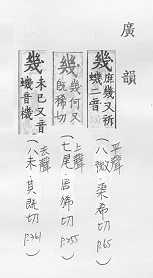 廣韻
幾 庶幾又祈
蟣二音
平聲
(八微 渠希切 P.65)
幾 幾何又
既稀切
上聲
(七尾 居狶切 P.255)
幾 未已又音
蟣音機
去聲
(八未 其既切 P.361)